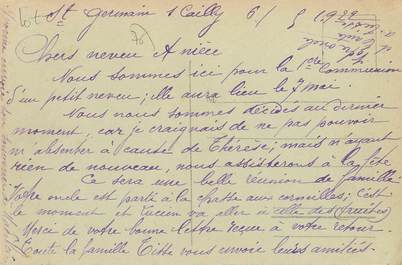 St Germain s/ Cailly 6/5 1922
Chers neveu & nièce
Nous sommes ici pour la 1ère Communion
d'un petit neveu ; elle aura lieu le 7 mai.
Nous nous sommes décidés au dernier
moment, car je craignais de ne pas pouvoir
m'absenter à cause de Thérèse ; mais n'ayant
rien de nouveau, nous assisterons à la fête
Ce sera une belle réunion de famille
Votre oncle est parti à la chasse aux corneilles ; c'est
le moment et Lucien va aller à celle des truites
Merci de votre bonne lettre reçue à votre retour.
Toute la famille vous envoie leurs amitiés.